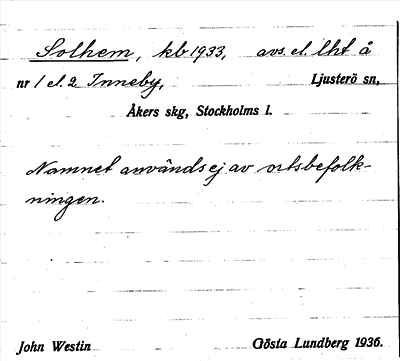 Solhem, kb 1933, avs. el. lht å
nr 1 el. 2 Inneby, Ljusterö sn,
Åkers skg, Stockholms l.
Namnet användes ej av ortsbefolk-
ningen.
John Westin Gösta Lundberg 1936.